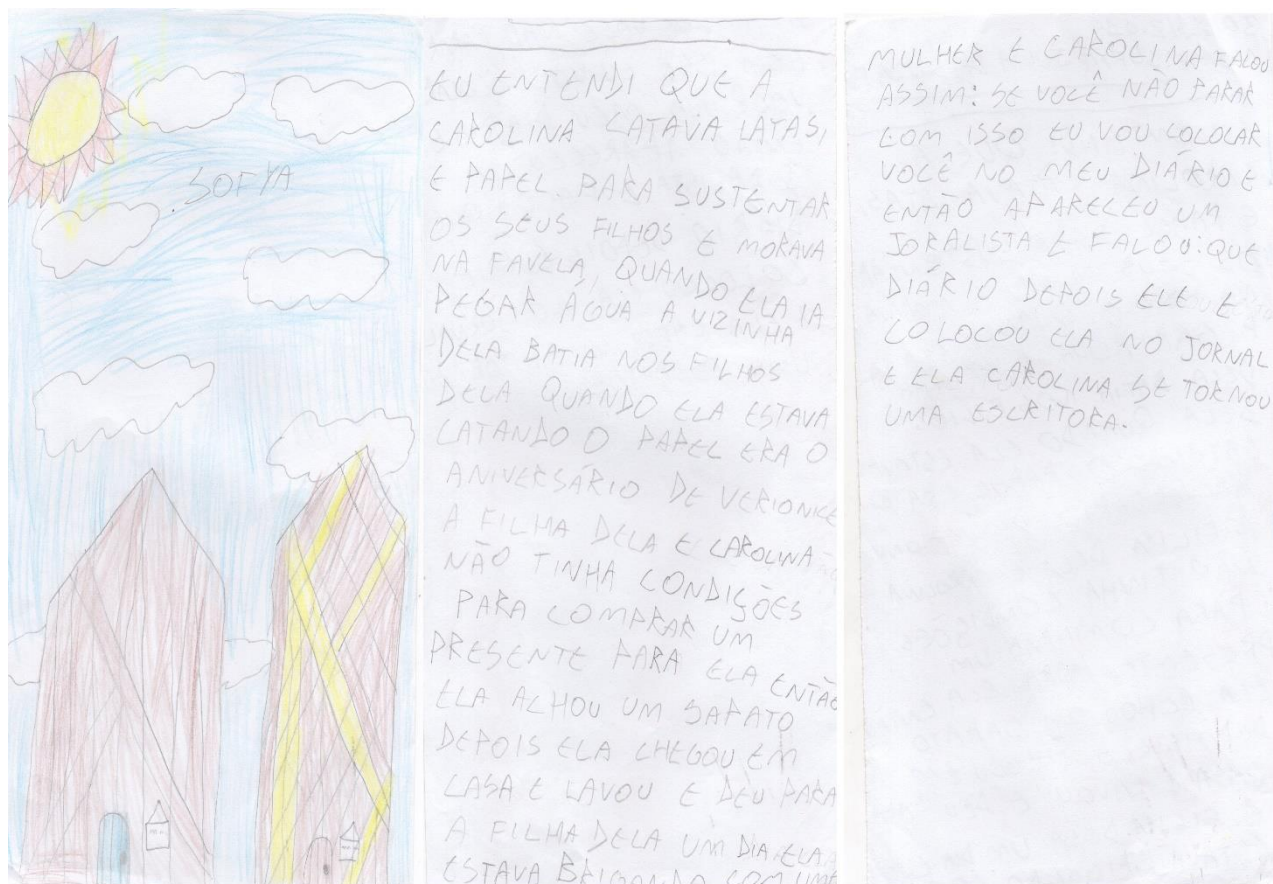 SOFYA
EU ENTENDI QUE A
CAROLINA CATAVA LATAS,
E PAPEL. PARA SUSTENTAR
OS SEUS FILHOS E MORAVA
NA FAVELA, QUANDO ELA IA
PEGAR ÁGUA A VIZINHA
DELA BATIA NOS FILHOS
DELA QUANDO ELA ESTAVA
CATANDO O PAPEL ERA O
ANIVERSÁRIO DE VERIONICE
A FILHA DELA E CAROLINA
NÃO TINHA CONDIÇÕES
PARA COMPRAR UM
PRESENTE PARA ELA ENTÃO
ELA ALHOU UM SAPATO
DEPOIS ELA CHEGOU EM
CASA E LAVOU E DEU PARA
A FILHA DELA UM DIA ELA
ESTAVA BRIGANDO COM UMA
MULHER E CAROLINA FALOU
ASSIM: SE VOCÊ NÃO PARAR
COM ISSO EU VOU COLOCAR
VOCÊ NO MEU DIÁRIO E
ENTÃO APARECEU UM
JORALISTA E FALOU: QUE
DIÁRIO DEPOIS ELE E
COLOCOU ELA NO JORNAL
E ELA CAROLINA SE TORNOU
UMA ESCRITORA.